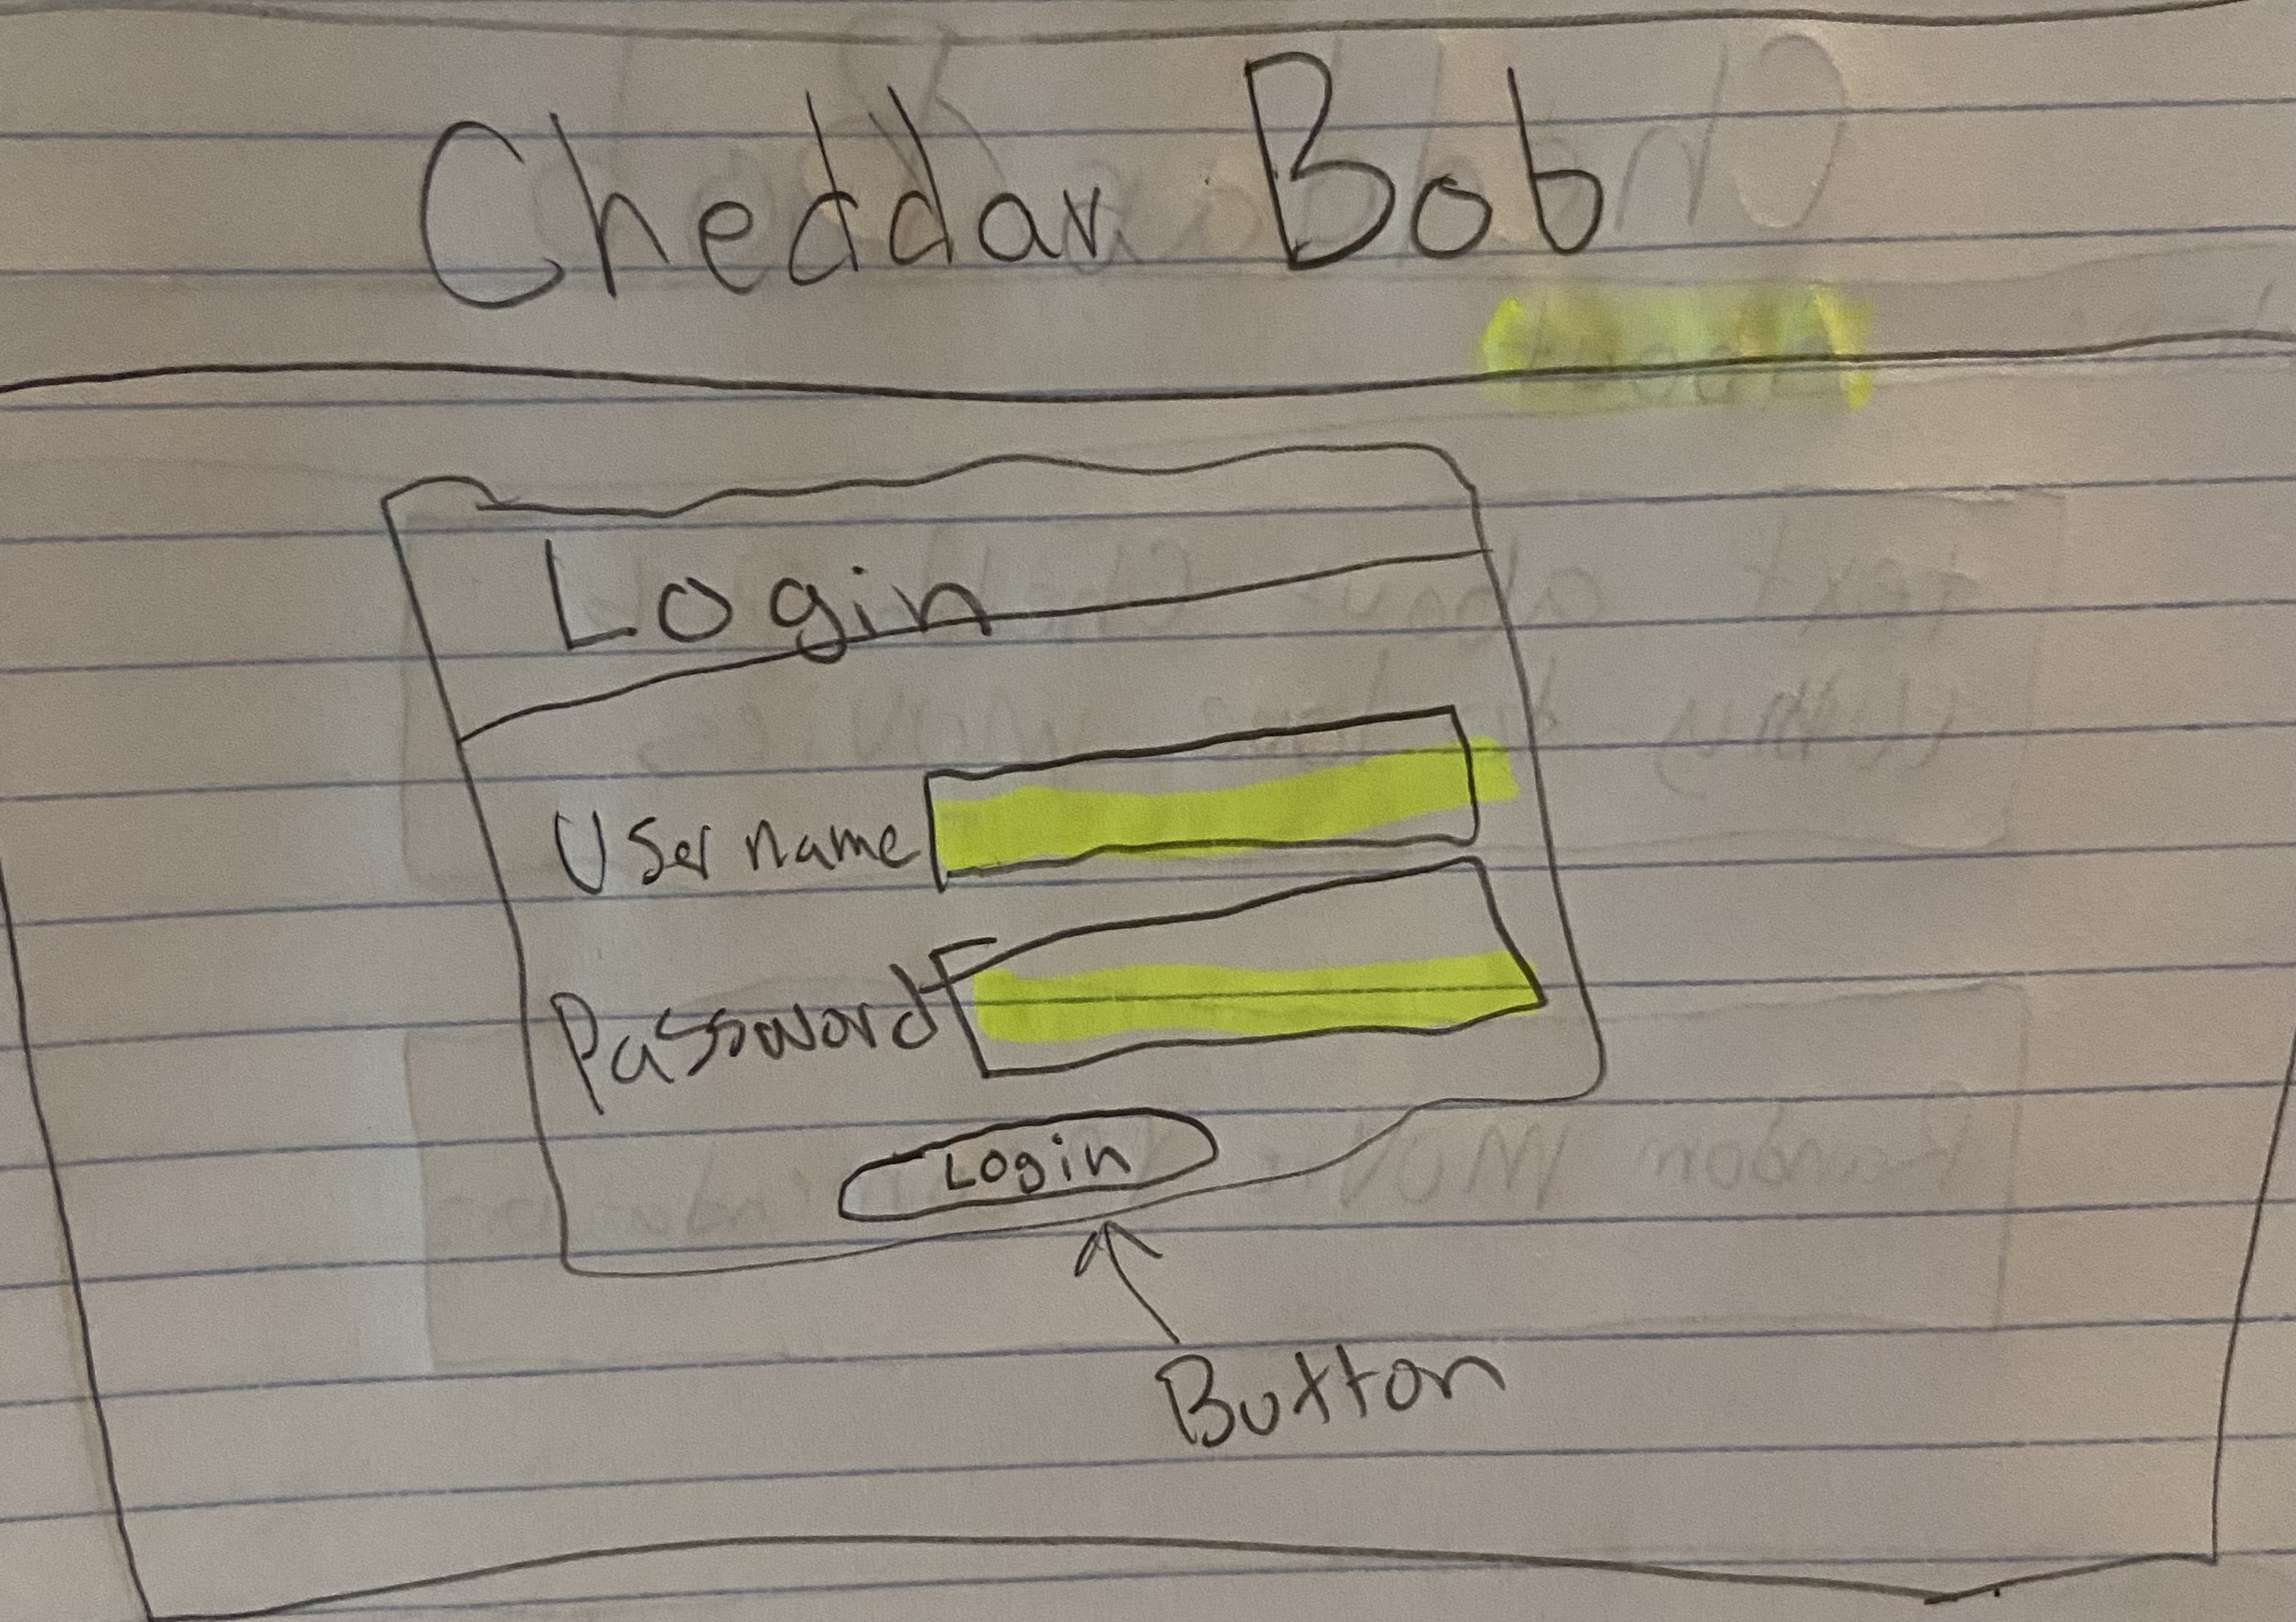 Cheddar Bob
Login
Username
Password
Login
Button